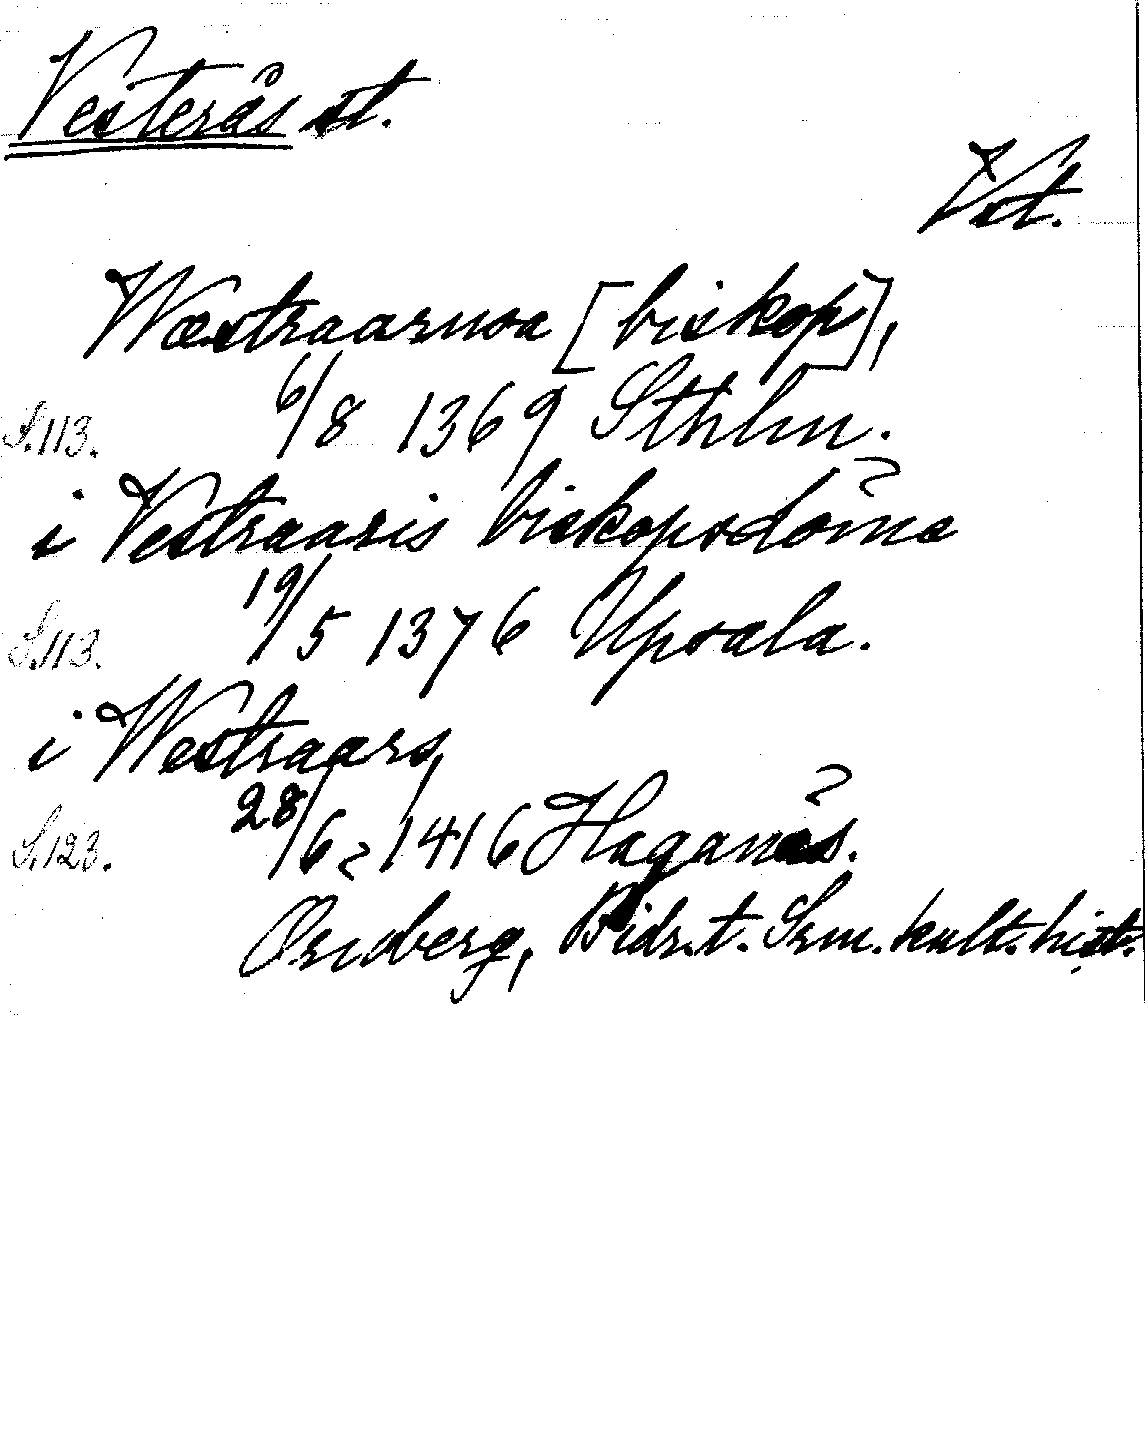 Vesterås st.
Vst.
Wæstraarnsa [biskop],
S. 113. 6/8 1369 Sthlm.
i Vestraaris biskopsdöme
S. 113. 19/5 1376 Upsala.
i Westraars,
S. 123. 28/6 1416 Haganæs.
Örnberg, Bidr. t. Srm. kult. hist.